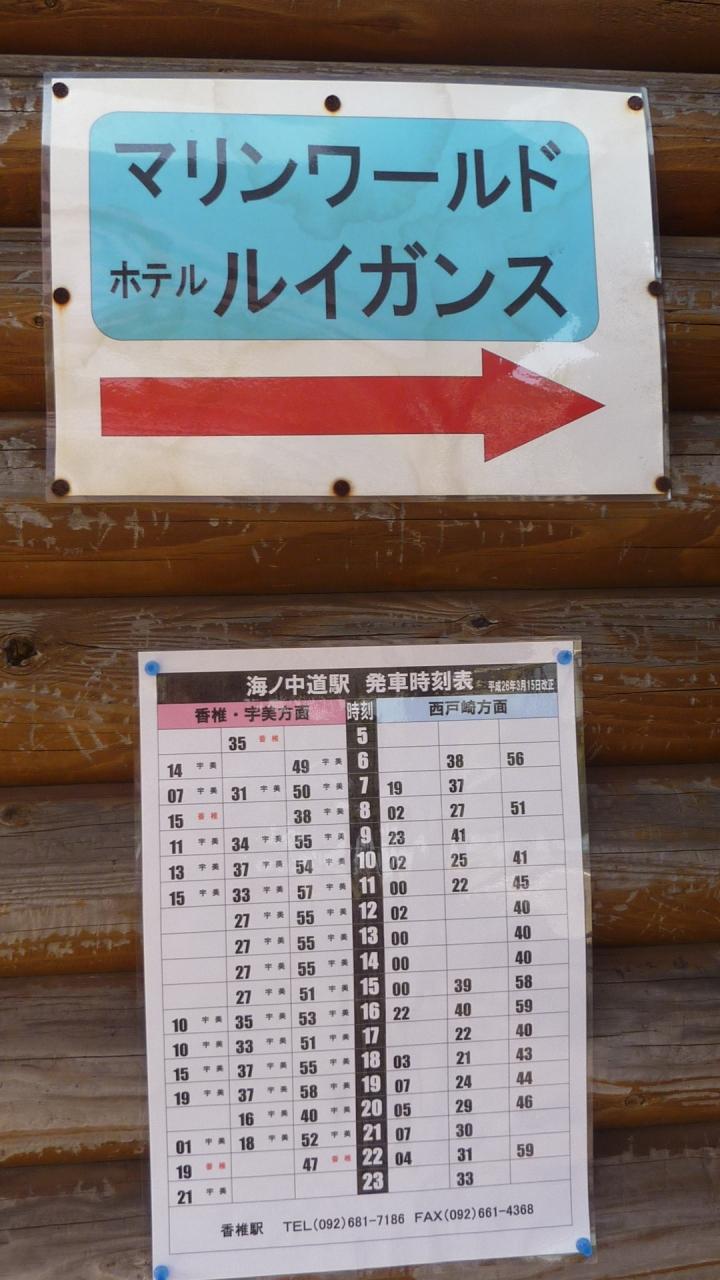 マリンワールド
ホテル ルイガンス
海ノ中道駅 発車時刻表 平成26年3月15日改正
香椎・宇美方面 時刻 西戸崎方面
35 香椎 5
14 宇美 49 宇美 6 38 56
07 宇美 31 宇美 50 宇美 7 19 37
15 香椎 38 宇美 8 02 27 51
11 宇美 34 宇美 55 宇美 9 23 41
13 宇美 37 宇美 54 宇美 10 02 25 41
15 宇美 33 宇美 57 宇美 11 00 22 45
27 宇美 55 宇美 12 02 40
27 宇美 55 宇美 13 00 40
27 宇美 55 宇美 14 00 40
27 宇美 51 宇美 15 00 39 58
10 宇美 35 宇美 53 宇美 16 22 40 59
10 宇美 33 宇美 51 宇美 17 22 40
15 宇美 37 宇美 55 宇美 18 03 21 43
19 宇美 37 宇美 58 宇美 19 07 24 44
16 宇美 40 宇美 20 05 29 46
01 宇美 18 宇美 52 宇美 21 07 30
19 香椎 47 香椎 22 04 31 59
21 宇美 23 33
香椎駅 TEL(092)681-7186 FAX(092)661-4368